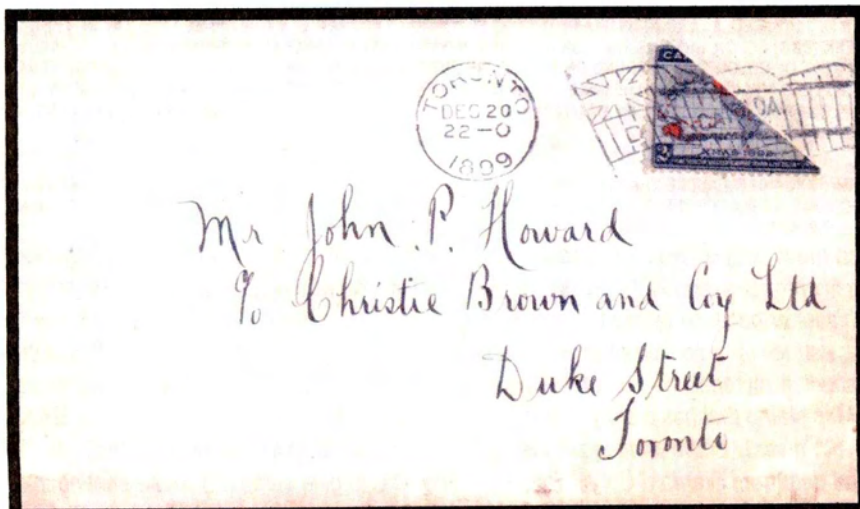 TORONTO
DEC 20
22-0
1899
CANADA
XMAS 1898
2
Mr John P. Howard
c/o Christie Brown and Coy Ltd
Duke Street
Toronto